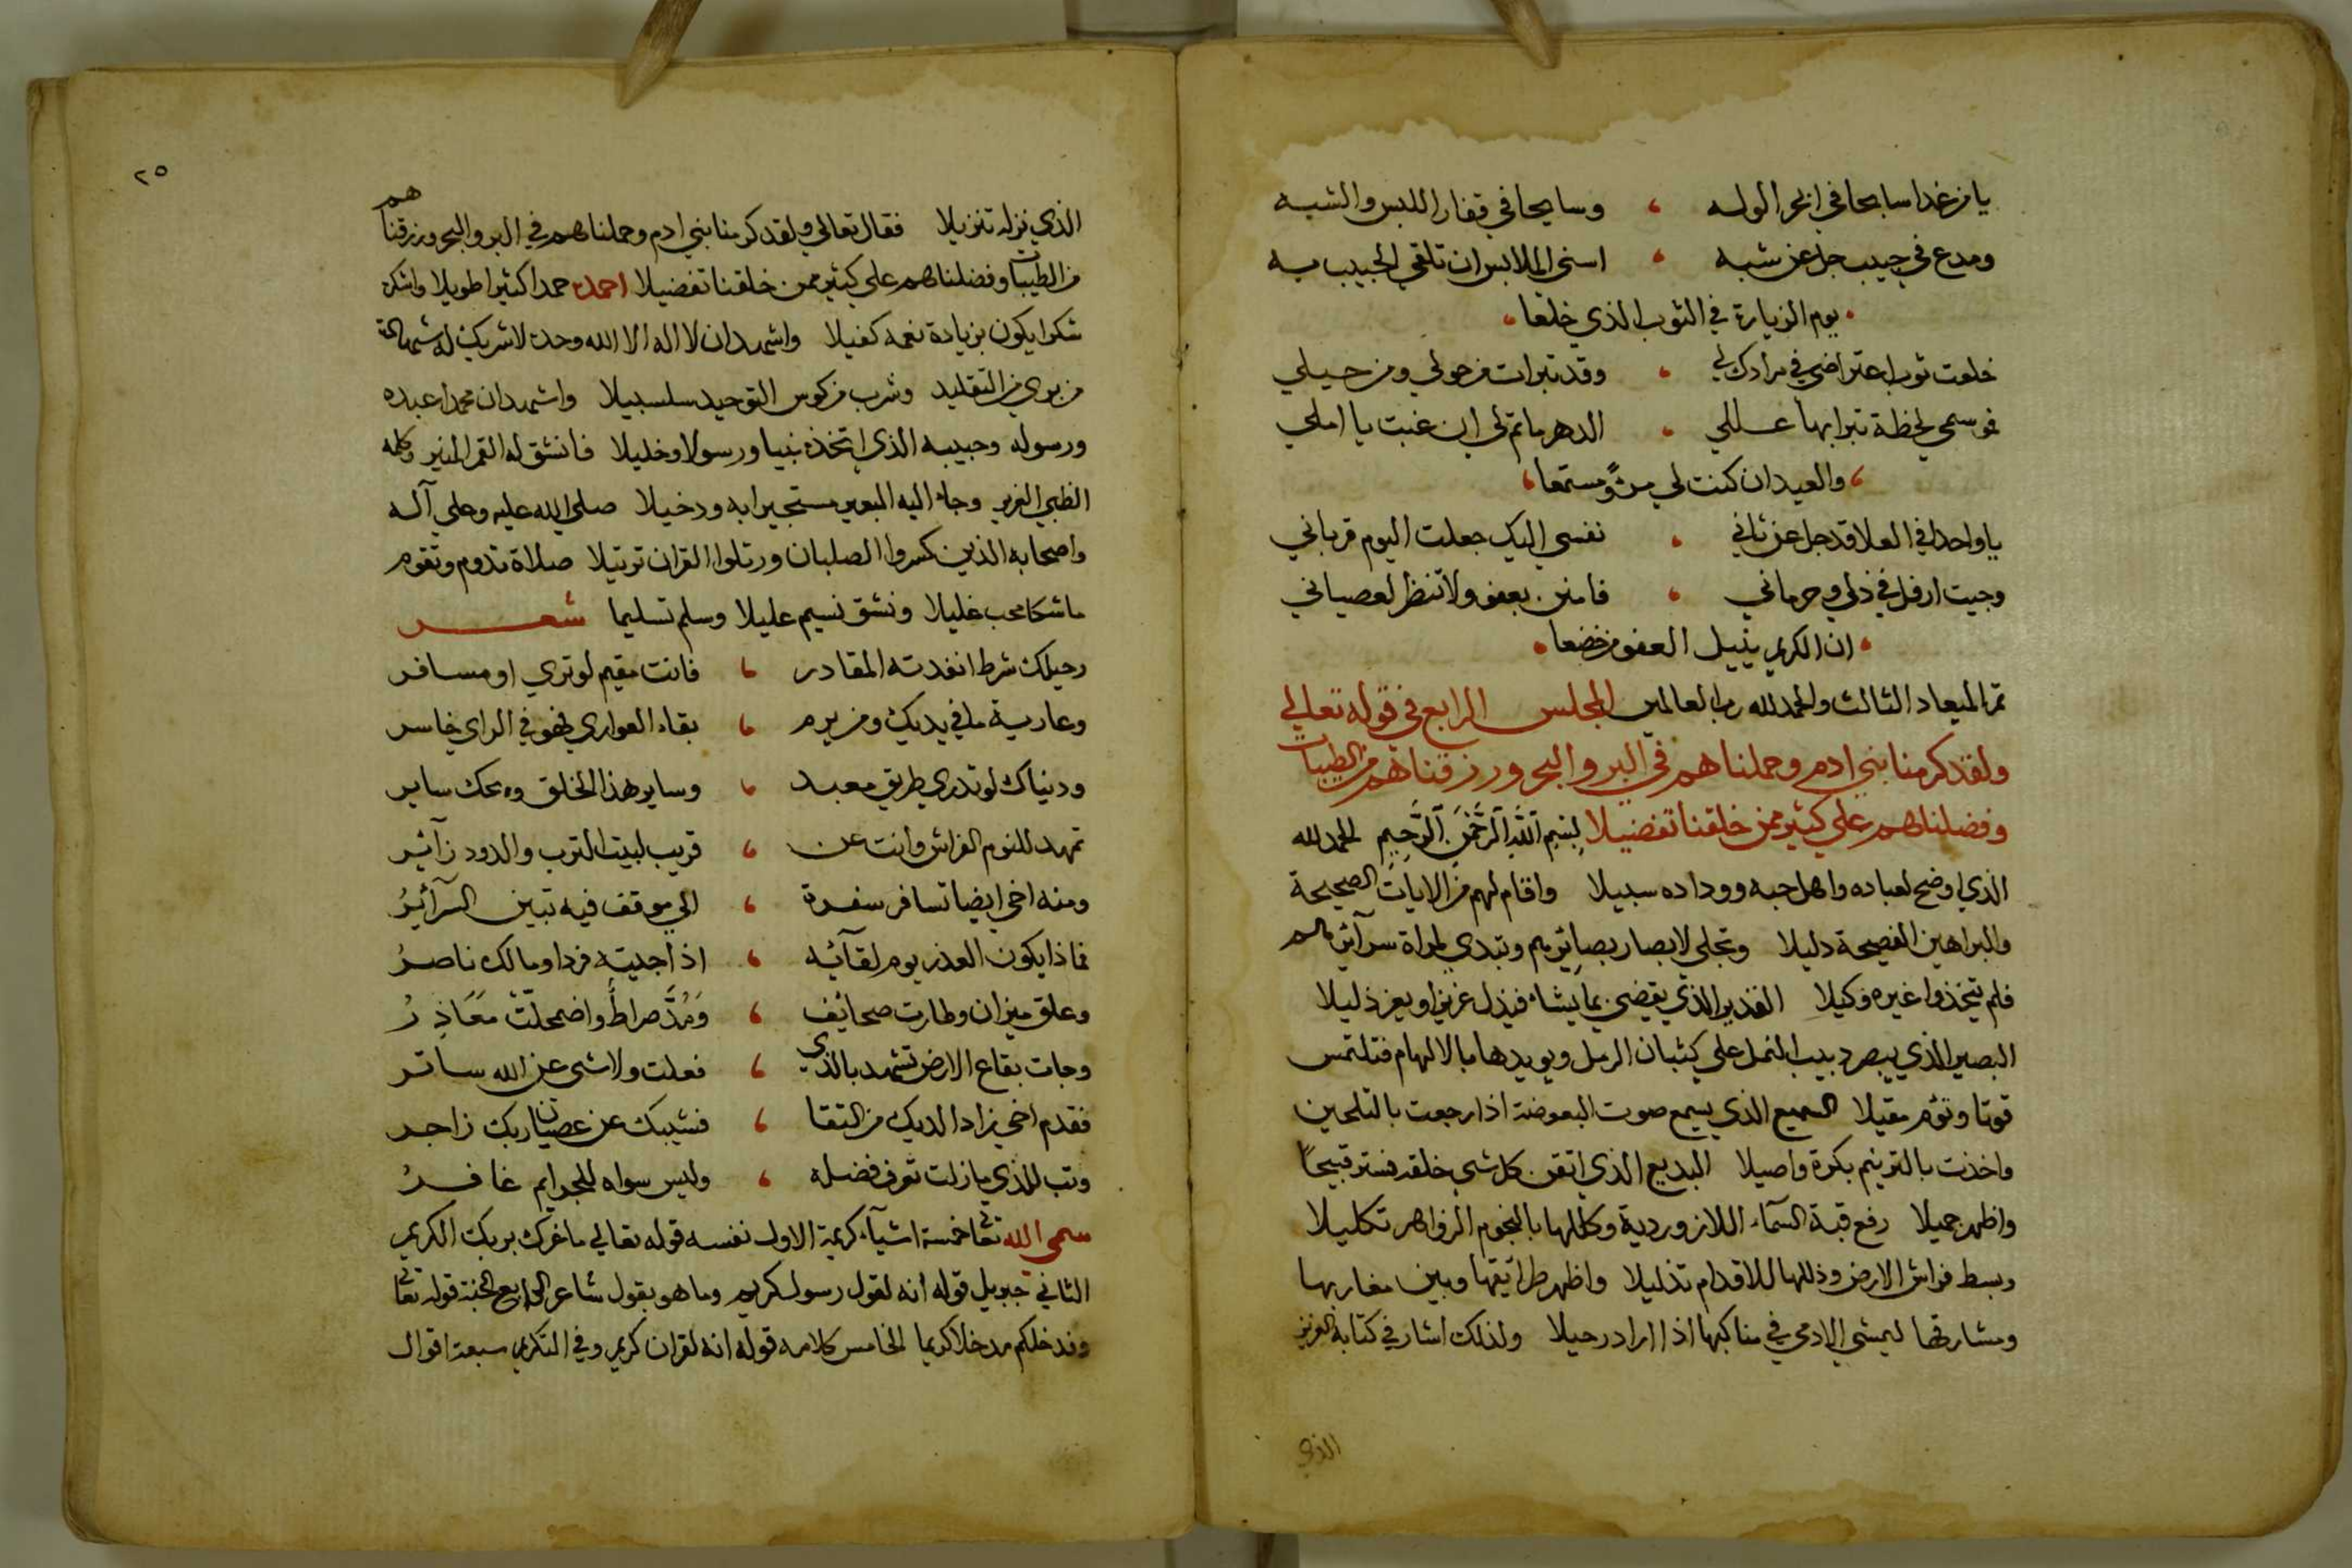 يا من غدا سابحا في ابحر الوله ، وسايحا في قفار اللبس والشبه
ومدع في حبيب جل عن شبه ، اسنى الملابس ان تلقي الحبيب به
، يوم الزيارة في الثوب الذي خلعا ،
خلعت ثوب اعتراضي في مرادك لي ، وقد تبرات من حولي ومن حيلي
فموسمي لحظة تبرا بها عللي ، الدهر ماتم لي ان غبت يا املي
، والعيد ان كنت لي مرًا ومستمعا ،
يا واحدا في العلا قد جل عن ثاني ، نفسي اليك جعلت اليوم قرباني
وجيت ارفل في ذلي وحرماني ، فامنن بعفو ولا تنظر لعصياني
، ان الكريم ينيل العفو من خضعا ،
تم الميعاد الثالث والحمد لله رب العالمين المجلس الرابع في قوله تعالي
ولقد كرمنا بني ادم وحملناهم في البر والبحر ورزقناهم من الطيبات
وفضلناهم علي كثير ممن خلقنا تفضيلا بِسْمِ اللَّهِ الرَّحْمَنِ الرَّحِيمِ الحمد لله
الذي اوضح لعباده واهل حبه ووداده سبيلا واقام لهم من الايات الصحيحة
والبراهين الفصيحة دليلا وتجلي لابصار بصايرهم وتبدي لمراة سرآئرهم
فلم يتخذوا غيره وكيلا القدير الذي يقضي بما يشاء فيذل عزيزا ويعز ذليلا
البصير الذي يبصر دبيب النمل علي كثبان الرمل ويويدها بالالهام فتلتمس
قوتا وتؤم مقيلا السميع الذي يسمع صوت البعوضة اذا رجعت بالتلحين
واخذت بالترنيم بكرة واصيلا البديع الذي اتقن كل شي خلقه فستر قبيحًا
واظهر جميلا رفع قبة السمآء اللازوردية وكللها بالنجوم الزواهر تكليلا
وبسط فراش الارض وذللها للاقدام تذليلا واظهر طرآئقها وبين مغاربها
ومشارقها ليمشي الادمي في مناكبها اذا اراد رحيلا ولذلك اشار في كتابه العزيز
الذي
٢٥
الذي نزله تنزيلا فقال تعالي ولقد كرمنا بني ادم وحملناهم في البر والبحر ورزقناهم
من الطيبات وفضلناهم علي كثير ممن خلقنا تفضيلا احمده حمدا كثيرا طويلا واشكره
شكرا يكون بزيادة نعمه كفيلا واشهد ان لا اله الا الله وحده لا شريك له شهادة
من بري من التقليد وشرب من كوس التوحيد سلسبيلا واشهد ان محمدا عبده
ورسوله وحبيبه الذي اتخذه نبيا ورسولا وخليلا فانشق له القمر المنير وكلمه
الظبي الغرير وجاء اليه البعير مستجيرا به ودخيلا صلي الله عليه وعلي آله
واصحابه الذين كسروا الصلبان ورتلوا القران ترتيلا صلاة تدوم وتقوم
ما شكا محب غليلا ونشق نسيم عليلا وسلم تسليما شعـــر
رحيلك شرط انفدته المقادر ، فانت مقيم لو تري او مسافر
وعارية ما في يديك ومن يرم ، بقاء العواري فهو في الراي خاسر
ودنياك لو تدري طريق معبد ، وساير هذا الخلق ويحك ساير
تمهد للنوم الفراش وانت عن ، قريب لبيت الترب والدود زآئر
ومنه اخي ايضا تسافر سفرة ، الي موقف فيه تبين السرآئرُ
فماذا يكون العذر يوم لقآئه ، اذا جيته فردا ومالك ناصرُ
وعلق ميزان وطارت صحائف ، وَمُدَّ صراطٌ واضمحلّتْ مَعَاذِرُ
وجات بقاع الارض تشهد بالذي ، فعلت ولا شي عن الله ساتر
فقدم اخي زادا لديك من التقا ، فشيبك عن عصيان ربك زاجر
وتب للذي ما زلت تعرف فضله ، وليس سواه للجرايم غافرُ
سمى الله تعا خمسة اشيآء كريمة الاول نفسه قوله تعالي ما غرك بربك الكريم
الثاني جبريل قوله انه لقول رسول كريم وما هو بقول شاعر الرابع الجنة قوله تعا
وندخلكم مدخلا كريما الخامس كلامه قوله انه لقران كريم وفي التكريم سبعة اقوال